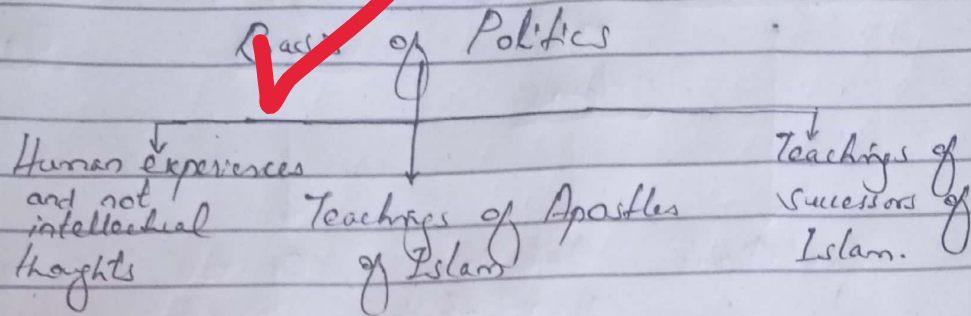 Basis of Politics
Human experiences
and not
intellectual
thoghts
Teachings of Apostles
of Islam
Teachings of
successors of
Islam.